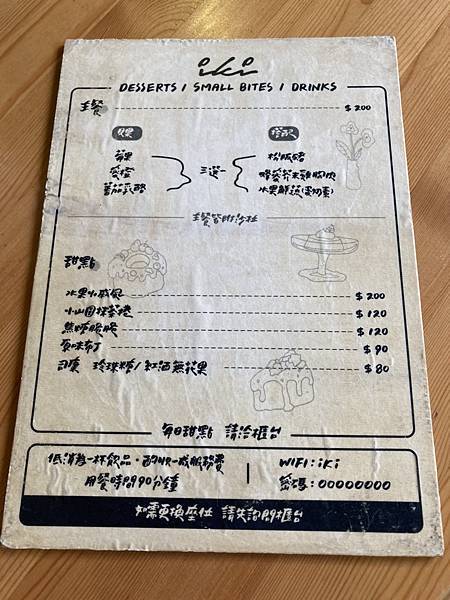 iki
DESSERTS / SMALL BITES / DRINKS
主餐 $200
貝果 搭配
蘋果 松阪豬
愛橙 三選一 蜂蜜芥末雞胸肉
蕃茄乳酪 水果鮮蔬
主餐皆附沙拉
甜點
水果小戚風 $200
小山園抹茶捲 $120
焦糖脆脆 $120
原味布丁 $90
司康 珍珠糖/紅酒無花果 $80
每日甜點 請洽櫃台
低消為一杯飲品・酌收一成服務費 WIFI:iki
用餐時間90分鐘 密碼:00000000
如需更換座位 請先詢問櫃台